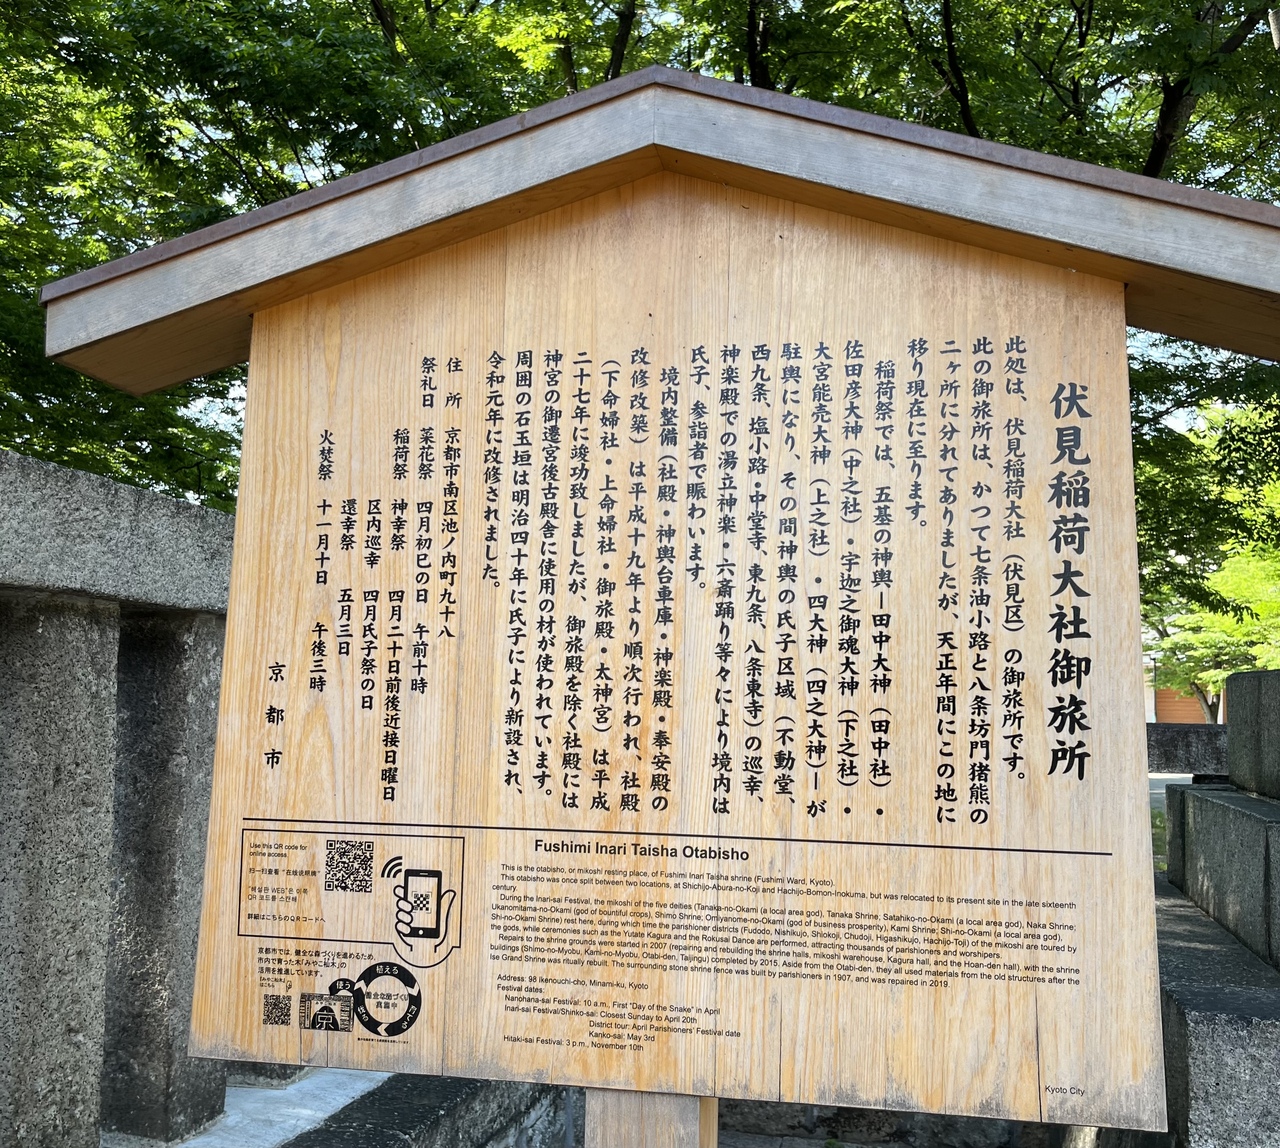 伏見稲荷大社御旅所
此処は、伏見稲荷大社（伏見区）の御旅所です。
此の御旅所は、かつて七条油小路と八条坊門猪熊の
二ヶ所に分れてありましたが、天正年間にこの地に
移り現在に至ります。
稲荷祭では、五基の神輿ー田中大神（田中社）・
佐田彦大神（中之社）・宇迦之御魂大神（下之社）・
大宮能売大神（上之社）・四大神（四之大神）ーが
駐輿になり、その間神輿の氏子区域（不動堂、
西九条、塩小路・中堂寺、東九条、八条東寺）の巡幸、
神楽殿での湯立神楽・六斎踊り等々により境内は
氏子、参詣者で賑わいます。
境内整備（社殿・神輿台車庫・神楽殿・奉安殿の
改修改築）は平成十九年より順次行われ、社殿
（下命婦社・上命婦社・御旅殿・太神宮）は平成
二十七年に竣功致しましたが、御旅殿を除く社殿には
神宮の御遷宮後古殿舎に使用の材が使われています。
周囲の石玉垣は明治四十年に氏子により新設され、
令和元年に改修されました。
住所 京都市南区池ノ内町九十八
祭礼日 菜花祭 四月初巳の日 午前十時
稲荷祭 神幸祭 四月二十日前後近接日曜日
区内巡幸 四月氏子祭の日
還幸祭 五月三日
火焚祭 十一月十日 午後三時
京都市
Fushimi Inari Taisha Otabisho
This is the otabisho, or mikoshi resting place, of Fushimi Inari Taisha shrine (Fushimi Ward, Kyoto).
This otabisho was once split between two locations, at Shichijo-Abura-no-Koji and Hachijo-Bomon-Inokuma, but was relocated to its present site in the late sixteenth
century.
During the Inari-sai Festival, the mikoshi of the five deities (Tanaka-no-Okami (a local area god), Tanaka Shrine; Satahiko-no-Okami (a local area god), Naka Shrine;
Ukanomitama-no-Okami (god of bountiful crops), Shimo Shrine; Omiyanome-no-Okami (god of business prosperity), Kami Shrine; Shi-no-Okami (a local area god),
Shi-no-Okami Shrine) rest here, during which time the parishioner districts (Fudodo, Nishikujo, Shiokoji, Chudoji, Higashikujo, Hachijo-Toji) of the mikoshi are toured by
the gods, while ceremonies such as the Yutate Kagura and the Rokusai Dance are performed, attracting thousands of parishioners and worshipers.
Repairs to the shrine grounds were started in 2007 (repairing and rebuilding the shrine halls, mikoshi warehouse, Kagura hall, and the Hoan-den hall), with the shrine
buildings (Shimo-no-Myobu, Kami-no-Myobu, Otabi-den, Taijingu) completed by 2015. Aside from the Otabi-den, they all used materials from the old structures after the
Ise Grand Shrine was ritually rebuilt. The surrounding stone shrine fence was built by parishioners in 1907, and was repaired in 2019.
Address: 98 Ikenouchi-cho, Minami-ku, Kyoto
Festival dates:
Nanohana-sai Festival: 10 a.m., First "Day of the Snake" in April
Inari-sai Festival/Shinko-sai: Closest Sunday to April 20th
District tour: April Parishioners' Festival date
Kanko-sai: May 3rd
Hitaki-sai Festival: 3 p.m., November 10th
Kyoto City
Use this QR code for
online access.
扫一扫查看"在线说明牌"
"해설판 WEB"은 이쪽
QR 코드를 스캔해
詳細はこちらのQRコードへ
京都市では、健全な森づくりを進めるため、
市内で育った木「みやこ杣木」の
活用を推進しています。
「みやこ杣木」
はこちら
使う
植える
健全な森づくり
京